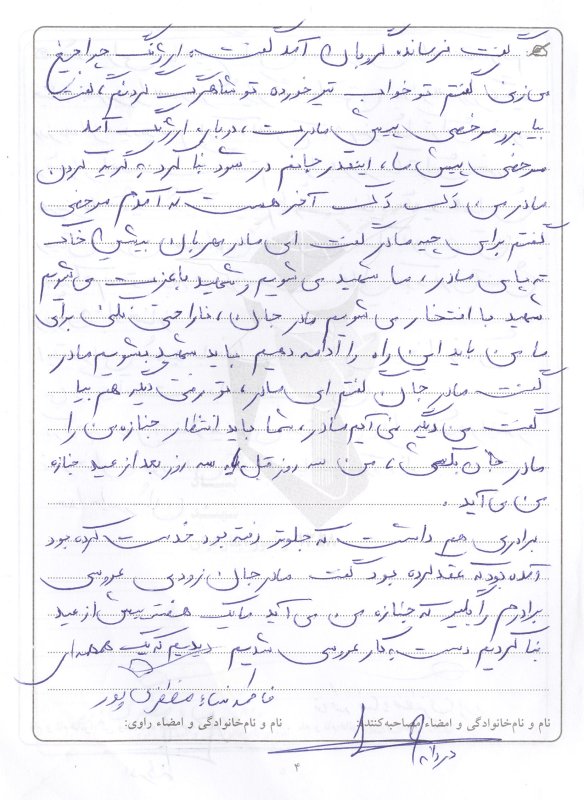 گفت فرمانده گروهان آمد گفت ارژنگ چرا جیغ
می‌زنی گفتم تو خواب تیر خورده تو شاهرگ گردنم، گفت
بیا برو مرخصی پیش مادرت، درباره ارژنگ آمد
مرخصی پیش ما، اینقدر جانم در شود بنا کرد به گریه کردن
مادر من، دَکَت دَکَت آخر هست که آمدم مرخصی
گفتم برای چیه مادر گفت ای مادر مهربان پیش خاک
ته پای مادر، ما شهید می شویم و شهید با عزت می شویم
شهید با افتخار می شویم مادر جان، ناراحتی نکن برای
ما من باید این راه را ادامه دهیم باید شهید بشویم مادر
گفت مادر جان گفتم ای مادر، تو رفتی دیگر هم بیا
گفت من دیگه نمی آیم مادر، شما باید انتظار جنازه من را
مادر جان بکشی، من سه روز قبل سه روز بعد از عید جنازه
من می آید.
برادری هم داشت که جلوتر رفته بود خدمت کرده بود
آمده بود که عقد کرده بود گفت مادر جان زودی عروسی
برادرم را بگیر که جنازه من می آید ما یک هفته پیش از عید
بنا کردیم دست به کار عروسی شدیم دیدیم که یک همهمه ای
فاطمه نساء مظفری پور
نام و نام‌خانوادگی و امضاء مصاحبه‌کننده: نام و نام‌خانوادگی و امضاء راوی:
۴